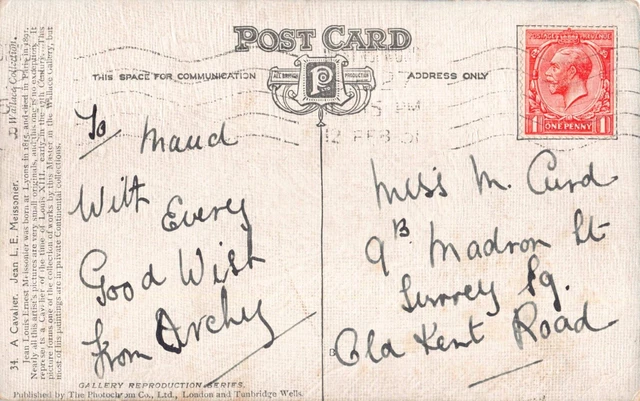 POST CARD
THIS SPACE FOR COMMUNICATION
ALL BRITISH
P
PRODUCTION
ADDRESS ONLY
POSTAGE REVENUE
1 ONE PENNY 1
12 FEB 31
To Maud
With Every
Good Wish
from Archy
Miss M. Curd
9B Madron St
Surrey Sq.
Old Kent Road
34. A Cavalier. Jean L. E. Meissonier. Wallace Collection.
Jean Louis Ernest Meissonier was born at Lyons in 1815 and died in Paris in 1891.
Nearly all this artist's pictures are very small originals, and this one is no exception. It
represents a Cavalier of the time of Louis XIII., early in the 17th Century. This
picture forms one of the collection of works by this Master in the Wallace Gallery, but
most of his paintings are in private Continental collections.
GALLERY REPRODUCTION SERIES.
Published by The Photochrom Co., Ltd., London and Tunbridge Wells.